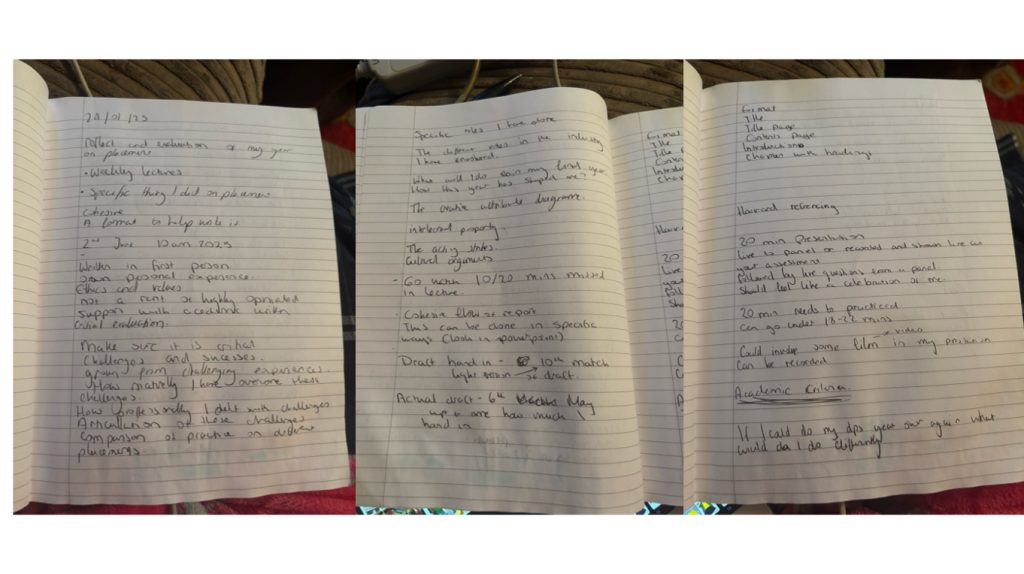 28/01/25
Reflect and evaluation of my year
on placement
• Weekly lectures
• Specific thing I did on placement
Cohesive
A format to help write is
2nd June 10am 2025
Written in first person
personal experience.
Ethics and values
not a rant or highly opinated
support with academic writen
Critial evaluation.
Make sure it is critial
Challenges and sucesses.
grown from challenging experiences.
How maturely I have overcome these
challenges.
How professionally I delt with challenges
Articulation of these challenges
Comparison of practice on
placements.
Specific roles I have done
The different roles in the industry
I have
What will I do
How this year has shaped me?
The creative attribute diagramme.
intelectual property.
The
Cultural arguments
- Go watch 10/20 mins missed
in lecture.
- Cohesive flow of report
This can be done in specific
ways (look in powerpoint)
Draft hand in - 10th match
draft.
Actual draft - 6th May
up to one how much I
hand in
Format
Title
Title
Conten
Introdu
Chap
Harva
20
live
your
foll
Sho
Format
Title
Title Page
Contents Page
Introductions
Chapters with headings
Harvard refrencing
20 min Presentation
live to panel or recorded and shown live as
your assessment
followed by live questions from a panel.
Should feel like a celebration of me.
20 min needs to practiced
Can go under 18-22 mins
video
Could involve some film in my
Can be recorded
Academic Criteria.
If I could do my dps year over again what
would I do differently